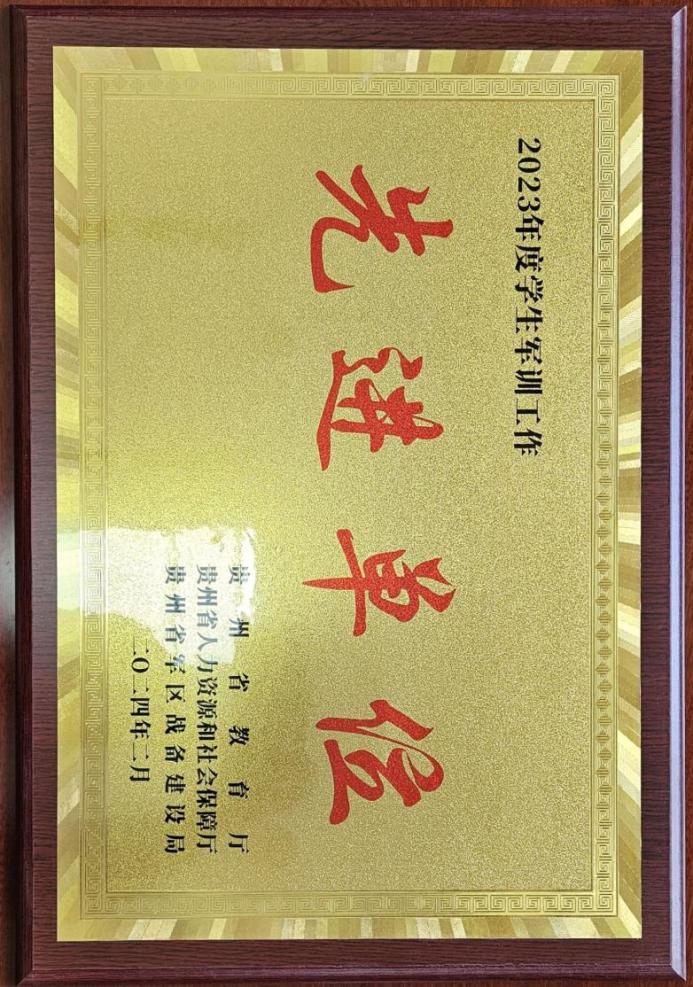 2023年度学生军训工作
先进单位
贵州省教育厅
贵州省人力资源和社会保障厅
贵州省军区战备建设局
二〇二四年二月